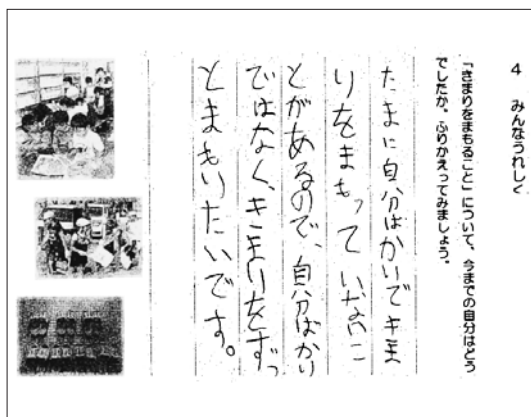 4 みんなうれしく
「きまりをまもること」について、今までの自分はどう
でしたか。ふりかえってみましょう。
たまに自分ばかいでキま
りをまもっていないこ
とがあるので、自分ばかり
ではなく、キまりをずっ
とまもりたいです。